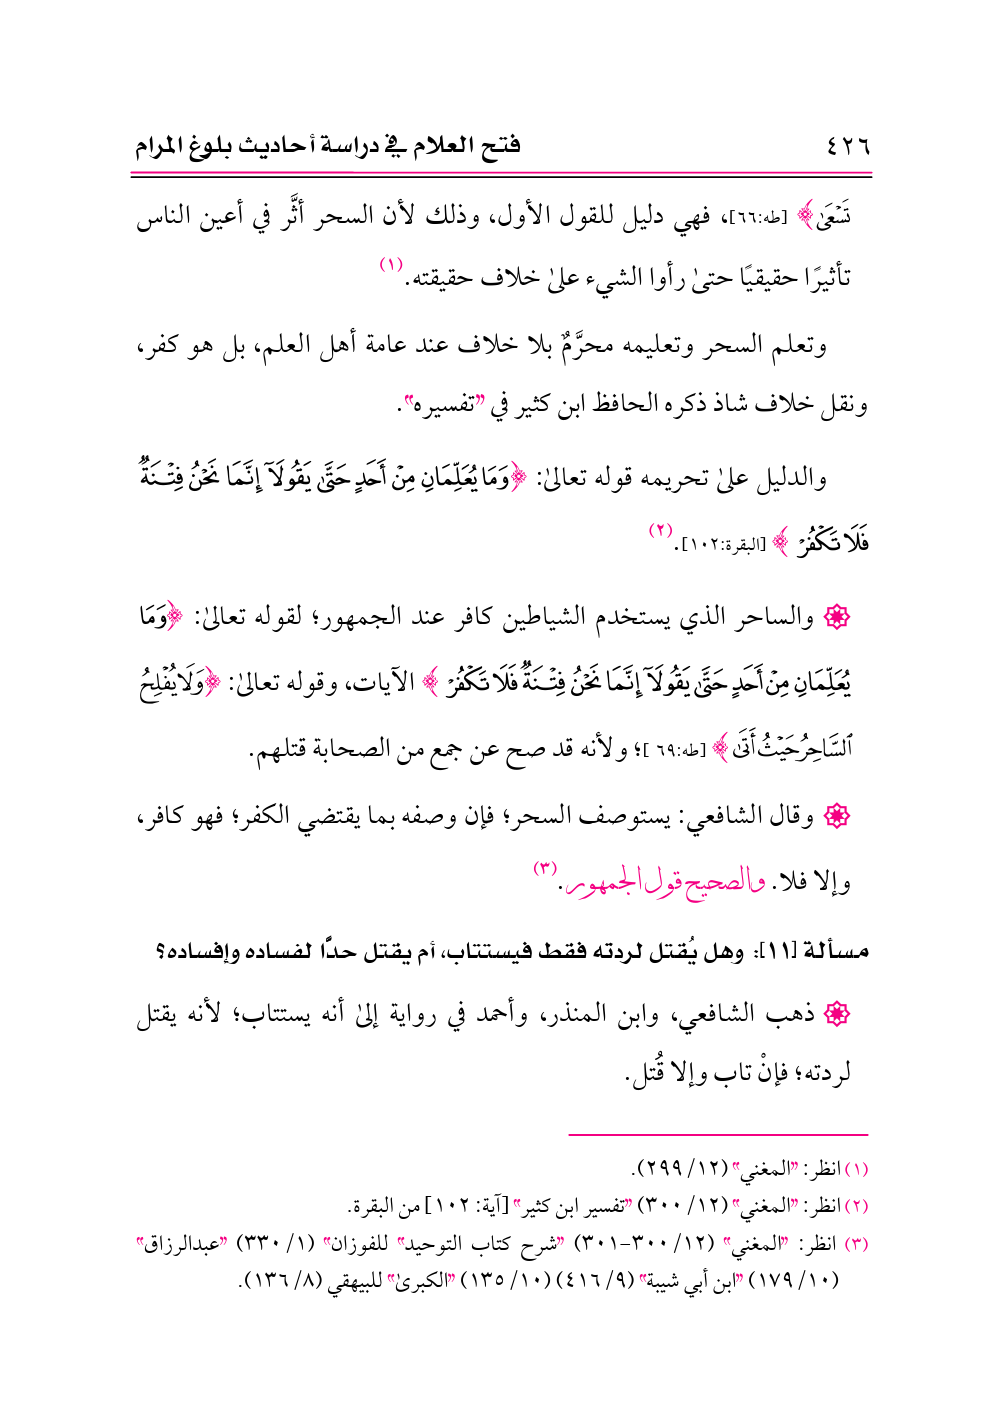 ٤٢٦ فتح العلام في دراسة أحاديث بلوغ المرام
تَسْعَىٰ﴾ [طه:٦٦]، فهي دليل للقول الأول، وذلك لأن السحر أثَّر في أعين الناس
تأثيرًا حقيقيًا حتىٰ رأوا الشيء علىٰ خلاف حقيقته.(١)
وتعلم السحر وتعليمه محرَّمٌ بلا خلاف عند عامة أهل العلم، بل هو كفر،
ونقل خلاف شاذ ذكره الحافظ ابن كثير في "تفسيره".
والدليل علىٰ تحريمه قوله تعالىٰ: ﴿وَمَا يُعَلِّمَانِ مِنْ أَحَدٍ حَتَّىٰ يَقُولَآ إِنَّمَا نَحْنُ فِتْنَةٌ
فَلَا تَكْفُرْ ﴾ [البقرة:١٠٢].(٢)
۞ والساحر الذي يستخدم الشياطين كافر عند الجمهور؛ لقوله تعالىٰ: ﴿وَمَا
يُعَلِّمَانِ مِنْ أَحَدٍ حَتَّىٰ يَقُولَآ إِنَّمَا نَحْنُ فِتْنَةٌ فَلَا تَكْفُرْ ﴾ الآيات، وقوله تعالىٰ: ﴿وَلَا يُفْلِحُ
ٱلسَّاحِرُ حَيْثُ أَتَىٰ﴾ [طه:٦٩ ]؛ ولأنه قد صح عن جمع من الصحابة قتلهم.
۞ وقال الشافعي: يستوصف السحر؛ فإن وصفه بما يقتضي الكفر؛ فهو كافر،
وإلا فلا. والصحيح قول الجمهور.(٣)
مسألة [١١]: وهل يُقتل لردته فقط فيستتاب، أم يقتل حدًّا لفساده وإفساده؟
۞ ذهب الشافعي، وابن المنذر، وأحمد في رواية إلىٰ أنه يستتاب؛ لأنه يقتل
لردته؛ فإنْ تاب وإلا قُتل.
(١) انظر: "المغني" (١٢/ ٢٩٩).
(٢) انظر: "المغني" (١٢/ ٣٠٠) "تفسير ابن كثير" [آية: ١٠٢] من البقرة.
(٣) انظر: "المغني" (١٢/ ٣٠٠-٣٠١) "شرح كتاب التوحيد" للفوزان" (١/ ٣٣٠) "عبدالرزاق"
(١٠/ ١٧٩) "ابن أبي شيبة" (٩/ ٤١٦) (١٠/ ١٣٥) "الكبرىٰ" للبيهقي (٨/ ١٣٦).